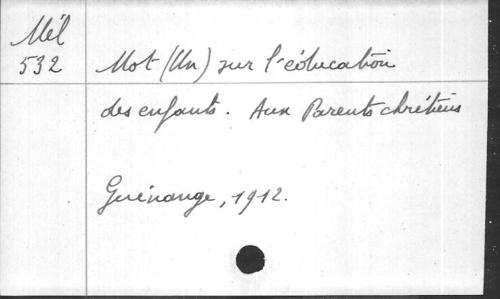 Mél
532
Mot (Un) sur l'éducation
des enfants. Aux Parents chrétiens
Guénange, 1912.